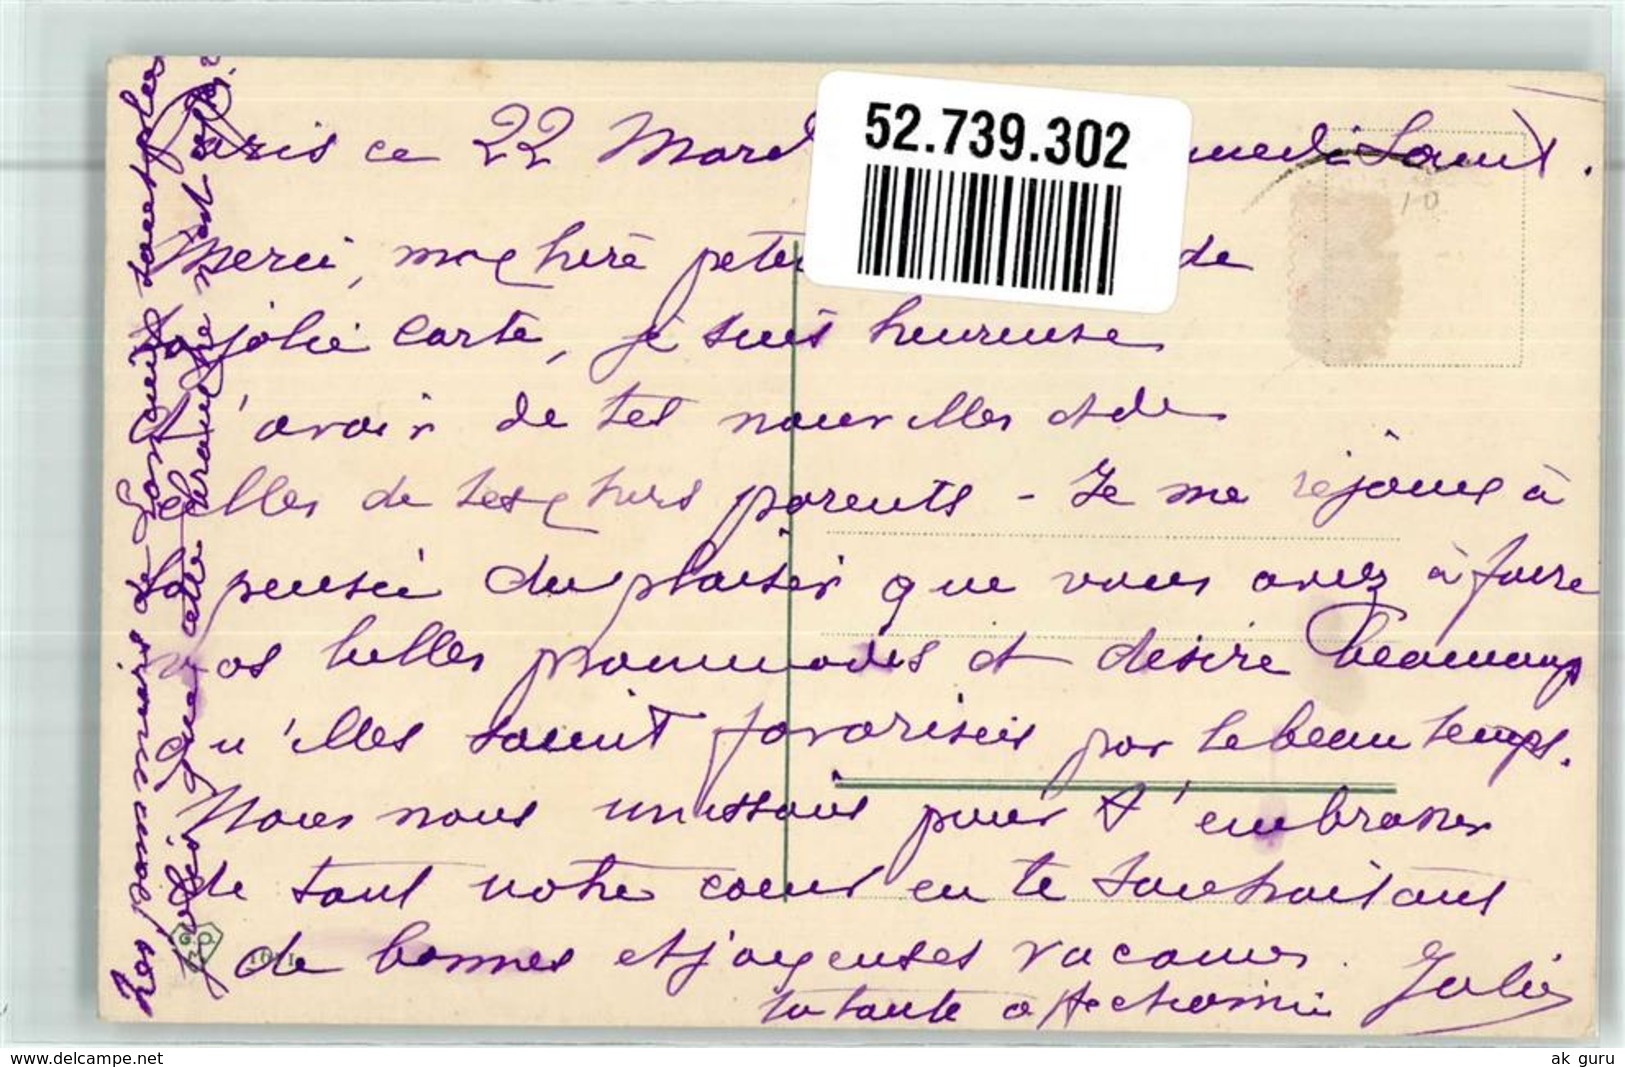 Paris ce 22 Mars medi Saint.
52.739.302
10
Merci, ma chère petite de
ta jolie carte, je suis heureuse
d'avoir de tes nouvelles et de
celles de tes chers parents - Je me réjouis à
la pensée du plaisir que vous avez à faire
vos belles promenades et désire beaucoup
qu'elles soient favorisées par le beau temps.
Nous nous unissons pour t'embrasser
de tout notre coeur en te souhaitant
de bonnes et joyeuses vacances.
ta tante affectionnée Julie
www.delcampe.net
ak guru